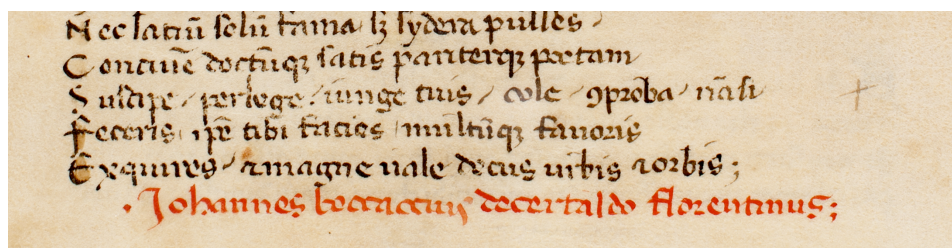 Nec latiũ solũ fama sꝫ sydera pulses
Conciuẽ doctũqꝫ satis pariterqꝫ poetam
Suscipe / perlege / iunge tuis / cole / ꝯproba / nãsi
Feceris, ip̃e tibi facies multũqꝫ fauoris
Exquires / & magne uale decus urbis & orbis;
. Johannes boccaccius decertaldo florentinus;